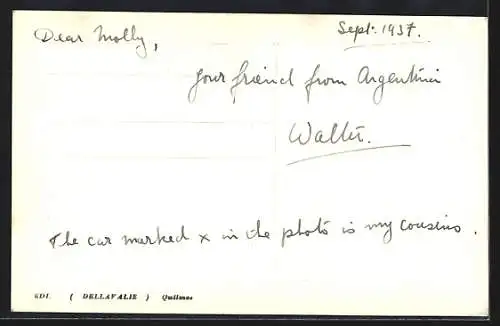 Sept: 1937.
Dear Molly,
your friend from Argentina
Walter.
The car marked x in the photo is my cousins.
EDI. ( DELLAVALLE ) Quilmes